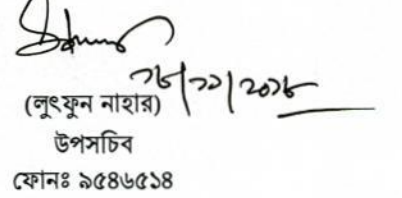 ১৮/১১/২০১৮
(লুৎফুন নাহার)
উপসচিব
ফোনঃ ৯৫৪৬৫১৪